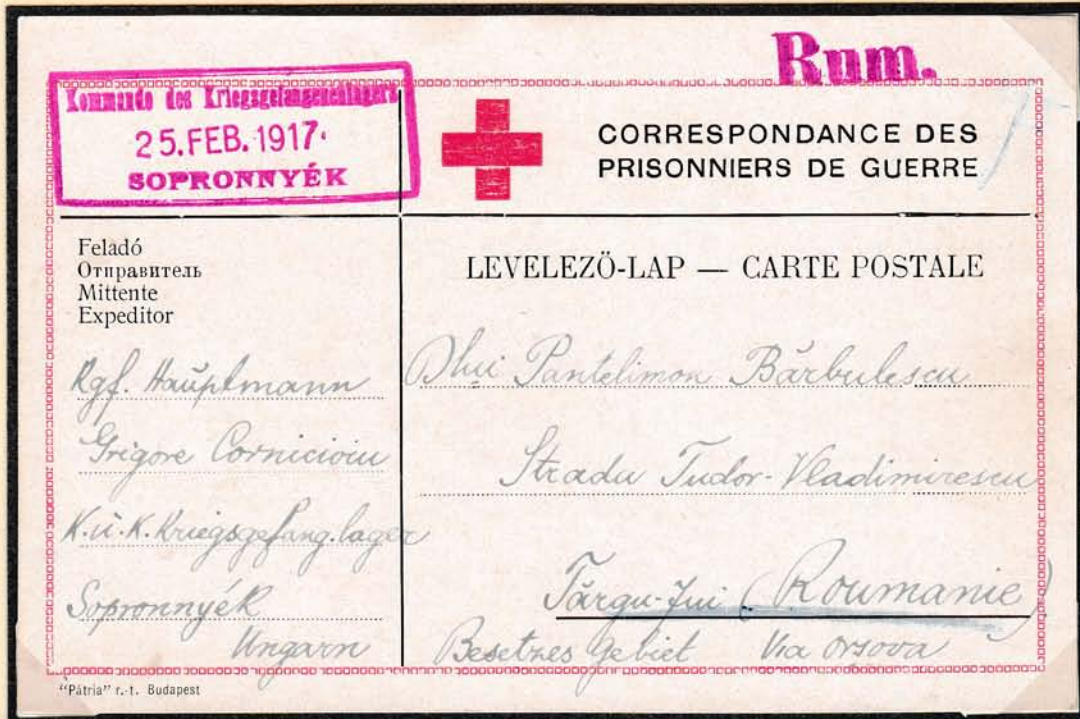 Rum.
Kommando des Kriegsgefangenenlagers
25. FEB. 1917.
SOPRONNYÉK
CORRESPONDANCE DES
PRISONNIERS DE GUERRE
Feladó
Отправитель
Mittente
Expeditor
Kgf. Hauptmann
Grigore Cornicioiu
K.u.K. Kriegsgefang.lager
Sopronnyék
Ungarn
LEVELEZŐ-LAP — CARTE POSTALE
Dlui Pantelimon Bărbulescu
Strada Tudor-Vladimirescu
Târgu-Jiu (Roumanie)
Besetzes Gebiet Via Orzova
"Pátria" r.-t. Budapest